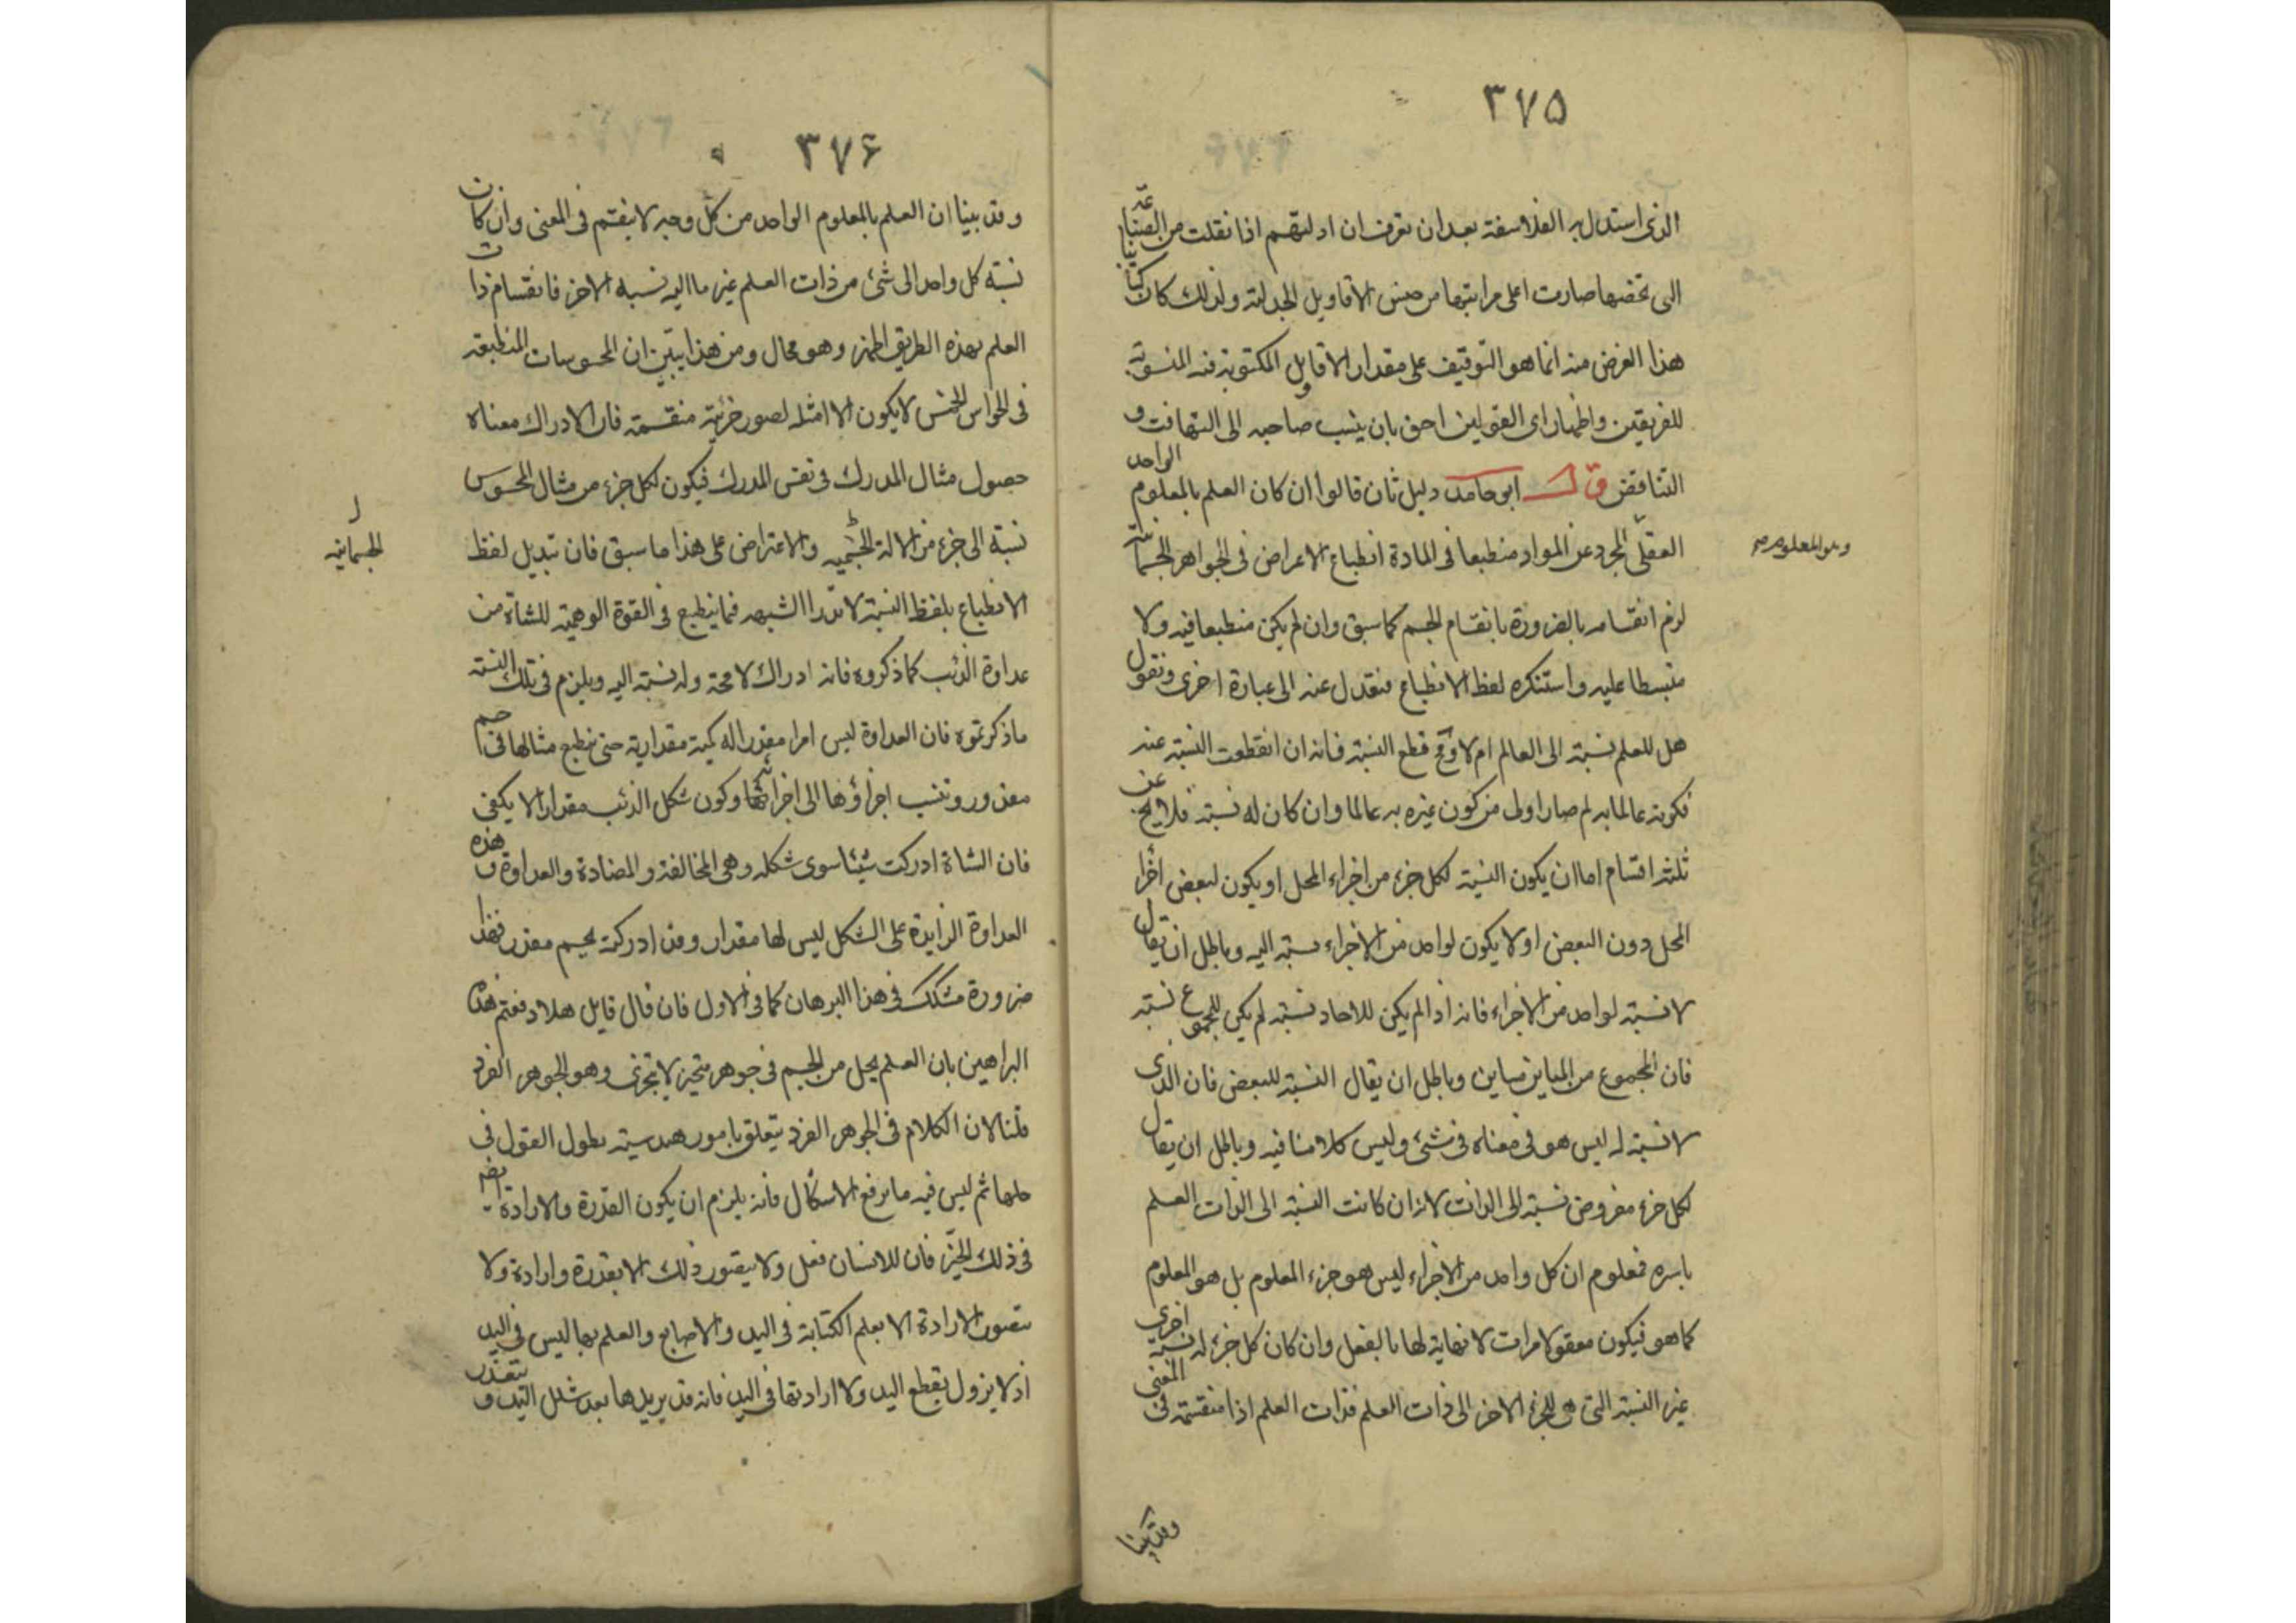 ٣٧٥
الذى استدل به الفلاسفة بعد ان تعرف ان ادلتهم اذا نقلت من الصناعة
التى تخصها صارت اعلى مراتبها من جنس الاقاويل الجدلية ولذلك كان كتابنا
هذا الغرض منه انما هو التوقيف على مقدار الاقاويل المكتوبة فيه المنسوبة
للفريقين واظهار اى القولين احق بان ينسب صاحبه الى التهافت و
التناقض قال ابو حامد دليل ثان قالوا ان كان العلم بالمعلوم الواحد
العقلى المجرد عن المواد منطبعا فى المادة انطباع الاعراض فى الجواهر الجسمانية
وهو المعلوم
لزم انقسامه بالضرورة بانقسام الجسم كما سبق وان لم يكن منطبعا فيه ولا
منبسطا عليه واستنكره لفظ الانطباع فنعدل عنه الى عبارة اخرى ونقول
هل للعلم نسبة الى العالم ام لا وع قطع النسبة فانه ان انقطعت النسبة عنه
فكونه عالما به لم صار اولى من كون غيره به عالما وان كان له نسبة فلا يخ عن
ثلثة اقسام اما ان يكون النسبة لكل جزء من اجزاء المحل او يكون لبعض اجزا
المحل دون البعض او لا يكون لواحد من الاجزاء نسبة اليه وباطل ان يقال
لا نسبة لواحد من الاجزاء فانه اذا لم يكن للاحاد نسبة لم يكن للمجموع نسبة
فان المجموع من المباين مباين وباطل ان يقال النسبة للبعض فان الذى
لا نسبة له ليس هو فى معناه فى شئ وليس كلامنا فيه وباطل ان يقال
لكل جزء مفروض نسبة الى الذات لانه ان كانت النسبة الى الذات العلم
باسره فمعلوم ان كل واحد من الاجزاء ليس هو جزء المعلوم بل هو المعلوم
كما هو فيكون معقولا مرات لا نهاية لها بالفعل وان كان كل جزء له نسبة اخرى
غير النسبة التى هى للجزء الاخر الى ذات العلم فذات العلم اذا منقسمة فى المعنى
وقد بينا
٣٧۶
وقد بينا ان العلم بالمعلوم الواحد من كل وجه لا ينقسم فى المعنى وان كان
نسبة كل واحد الى شئ من ذات العلم غير ما اليه نسبه الاخر فانقسام ذات
العلم بهذه الطريق اظهر وهو محال ومن هذا يتبين ان المحسوسات المنطبعة
فى الحواس الخمس لا يكون الا امثلة لصور جزئية منقسمة فان الادراك معناه
حصول مثال المدرك فى نفس المدرك فيكون لكل جزء من مثال المحسوس
نسبة الى جزء من الالة الجسميه والاعتراض على هذا ما سبق فان تبديل لفظ
الجسمانية
الانطباع بلفظ النسبة لا تدرا الشبهه فيما ينطبع فى القوة الوهمية للشاة من
عداوة الذئب كما ذكروه فانه ادراك لا محة وله نسبة اليه ويلزم فى تلك النسبة
ما ذكرتموه فان العداوة ليس امرا مقدرا له كمية مقدارية حتى ينطبع مثالها فى جسم
مقدور وتنسب اجزاؤها الى اجزائها وكون شكل الذئب مقدارا لا يكفى
فان الشاة ادركت شيئا سوى شكله وهى المخالفة والمضادة والعداوة و هذه
العداوة الزايدة على الشكل ليس لها مقدار وقد ادركته بجسم مقدر فهذا
ضرورة مشكك فى هذا البرهان كما فى الاول فان قال قايل هلا دفعتم هذه
البراهين بان العلم يحل من الجسم فى جوهر متحيز لا يتجزى وهو الجوهر الفرد
قلنا لان الكلام فى الجوهر الفرد يتعلق بامور هندسية يطول القول فى
حلها ثم ليس فيه ما يرفع الاشكال فانه يلزم ان يكون القدرة والارادة ايضا
فى ذلك الجزء فان للانسان فعل ولا يتصور ذلك الا بقدرة وارادة ولا
يتصور الارادة الا بعلم الكتابة فى اليد والاصابع والعلم بها ليس فى اليد
اذ لا يزول بقطع اليد ولا ارادتها فى اليد فانه قد يريدها بعد شلل اليد و يتعذر